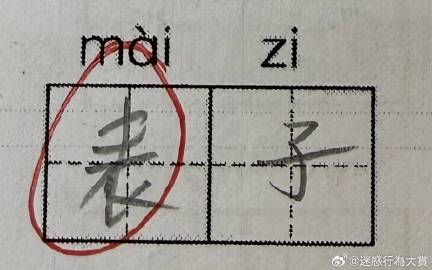 mài zi
表子
@迷惑行為大賞